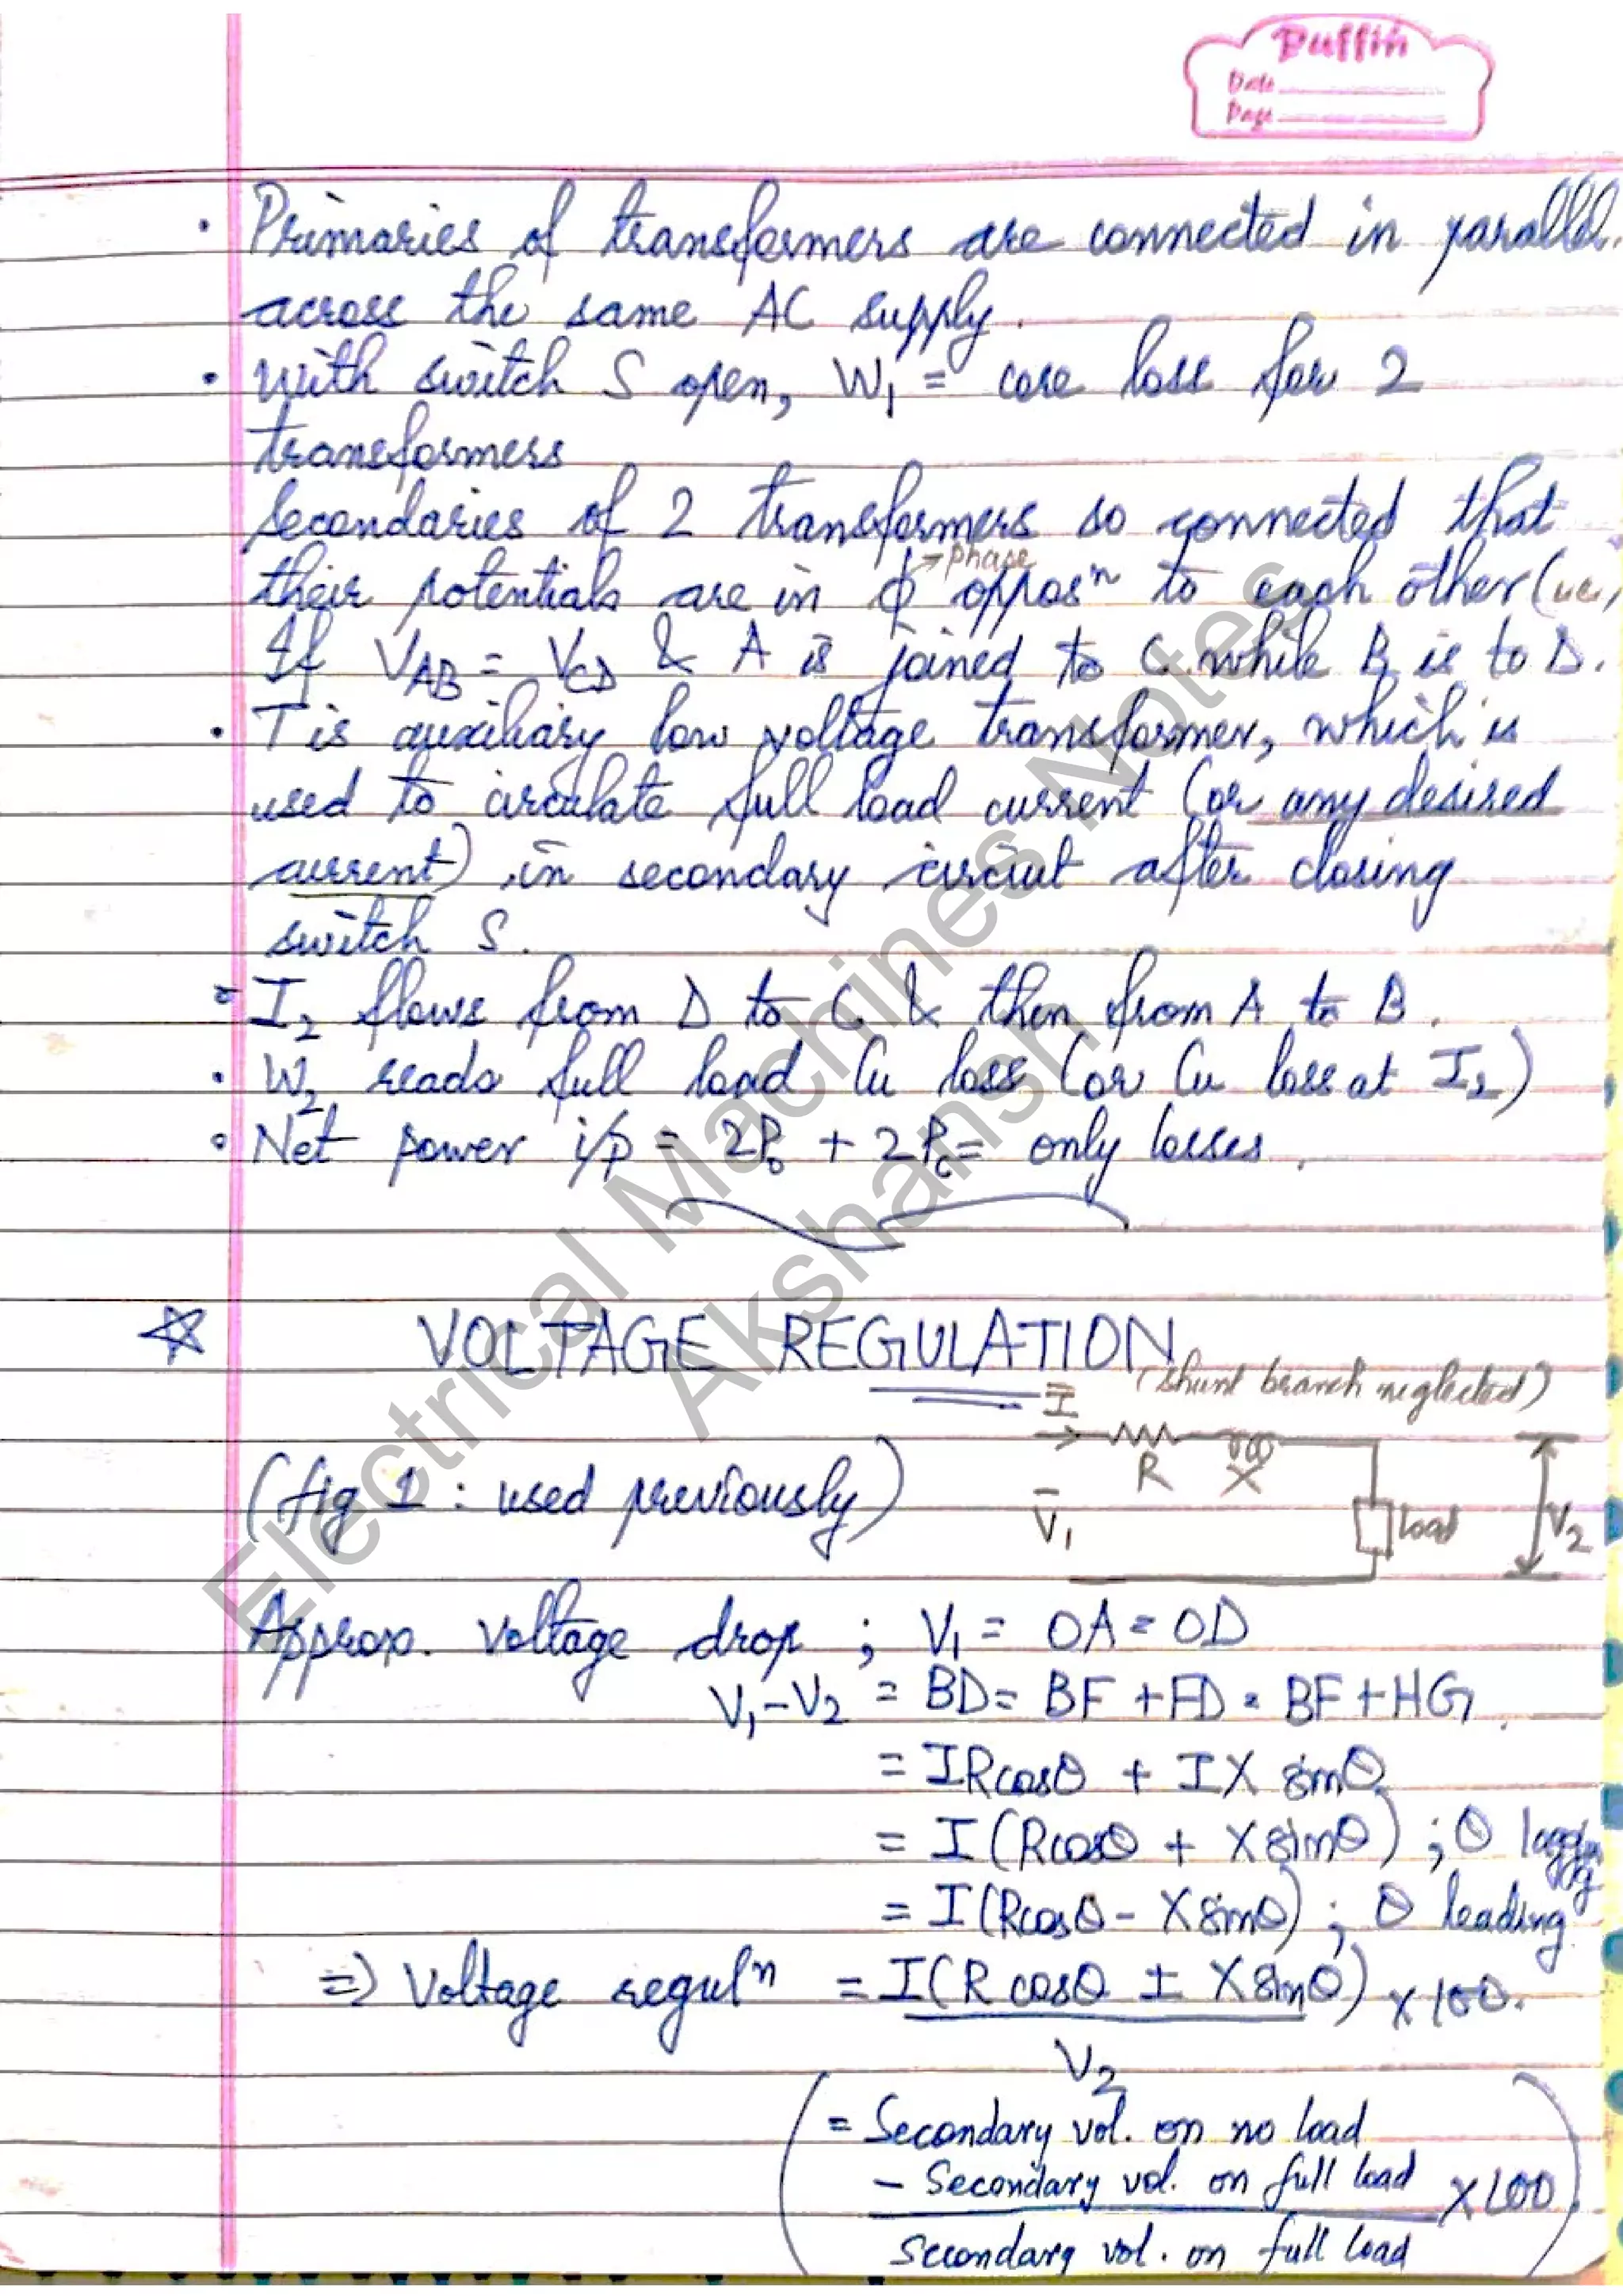 Puffin
Date
Page
• Primaries of transformers are connected in parallel
across the same AC supply.
• With switch S open, W₁ = core loss for 2
transformers
Secondaries of 2 transformers so connected that
→ Phase
their potentials are in ϕ opposⁿ to each other (i.e.,
If V_AB = V_CD & A is joined to C while B is to D.
• T is auxiliary low voltage transformer, which is
used to circulate full load current (or any desired
current) in secondary circuit after closing
switch S.
• I₂ flows from D to C & then from A to B.
• W₂ reads full load Cu loss (or Cu loss at I₂)
• Net power i/p = 2P₀ + 2P_c = only losses.
☆ VOLTAGE REGULATION
(shunt branch neglected)
I
R X
(fig 1 : used previously)
V₁ load V₂
Approx. voltage drop ; V₁ = OA = OD
V₁-V₂ = BD = BF + FD = BF + HG
= IRcosθ + IX sinθ
= I(Rcosθ + Xsinθ) ; θ lagging
= I(Rcosθ - Xsinθ) ; θ leading
⇒ Voltage regulⁿ = I(R cosθ ± Xsinθ) × 100.
V₂
(= Secondary vol. on no load
- Secondary vol. on full load × 100)
Secondary vol. on full load
Electrical Machines Notes
Akshansh